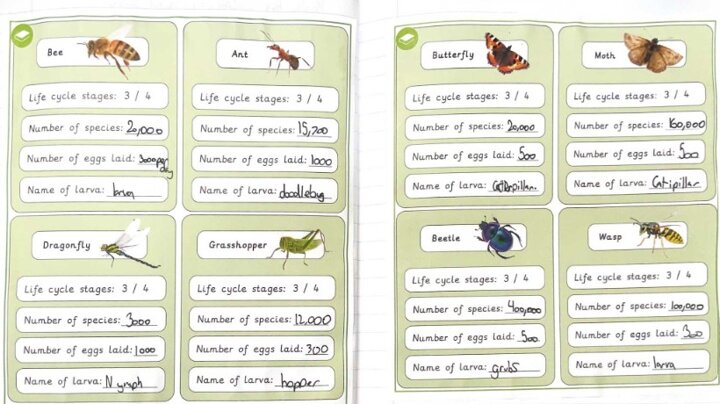 Bee
Life cycle stages: 3 / 4
Number of species: 20,000
Number of eggs laid: 3000 per day
Name of larva: larva
Ant
Life cycle stages: 3 / 4
Number of species: 15,700
Number of eggs laid: 1000
Name of larva: doodlebug
Dragonfly
Life cycle stages: 3 / 4
Number of species: 3000
Number of eggs laid: 1000
Name of larva: Nymph
Grasshopper
Life cycle stages: 3 / 4
Number of species: 12.000
Number of eggs laid: 300
Name of larva: hopper
Butterfly
Life cycle stages: 3 / 4
Number of species: 20,000
Number of eggs laid: 500
Name of larva: Catterpillar.
Moth
Life cycle stages: 3 / 4
Number of species: 160,000
Number of eggs laid: 500
Name of larva: Catipillar
Beetle
Life cycle stages: 3 / 4
Number of species: 400,000
Number of eggs laid: 500
Name of larva: grubs
Wasp
Life cycle stages: 3 / 4
Number of species: 100,000
Number of eggs laid: 300
Name of larva: larva